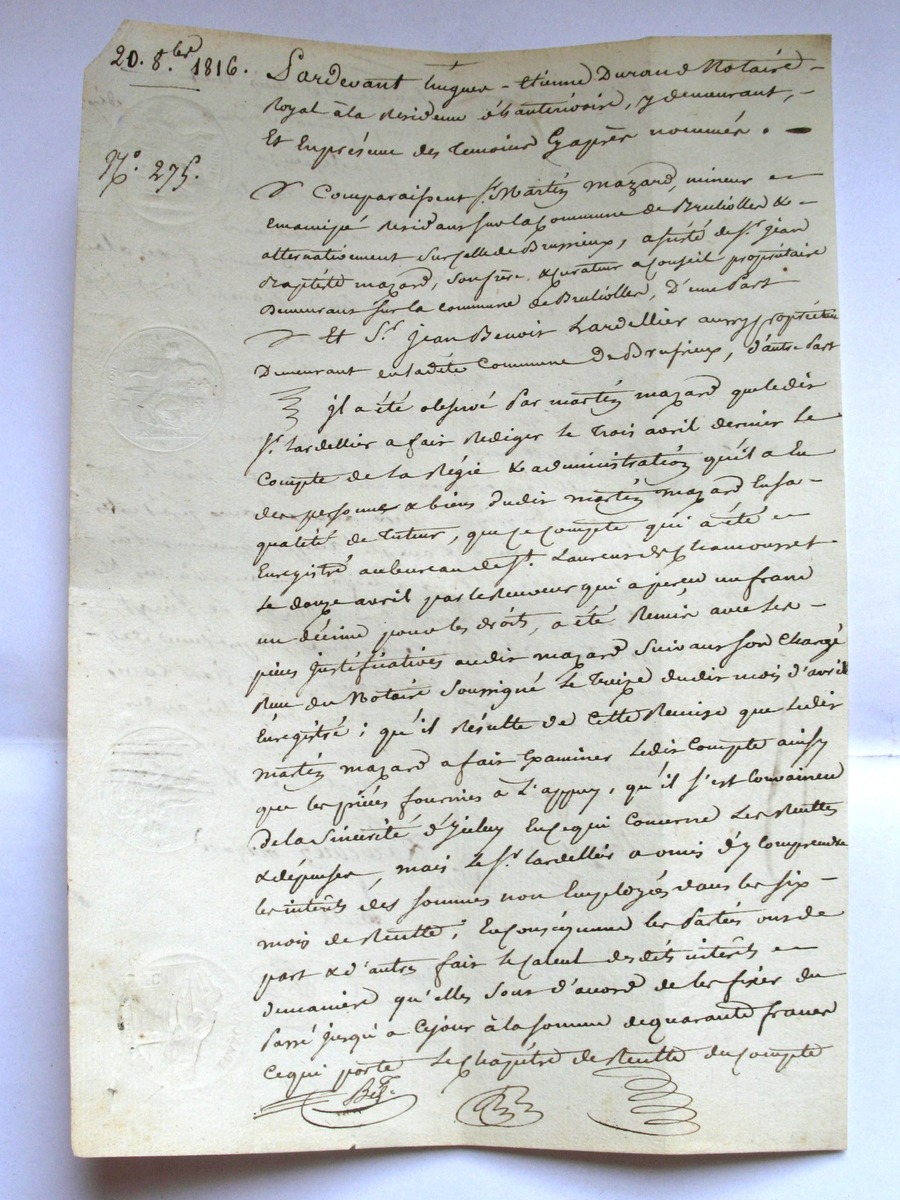 20. 8.bre 1816.
Pardevant hugues - Etienne Durand Notaire -
Royal à la Residence de hauterivoire, y demeurant, -
Et En présence des temoins Cy après nommés. -
N.o 275.
Comparaissent Sr. Martin mazard, mineur -
emancipé residant sur la Commune de Brullioles & -
alternativement sur celle de Brussieux, assisté de Sr. jean
Baptiste mazard, son frère, & curateur a conseil propriétaire
Demeurant sur la commune de Brullioles, D'une Part
Et Sr. jean Benoit Lardellier aussy propriétaire
Demeurant en ladite Commune De Brussieux, d'autre Part
jl a été observé Par martin mazard que ledit
Sr. lardellier a fait Rediger le trois avril dernier le
Compte de la Régie & administration qu'il a Eu
des personne & biens dudit martin mazard En sa -
qualité de tuteur, que ce compte qui a été
Enregistré au bureau de St. Laurent de Chamousset
Le douze avril par le receveur qui a perçu un franc
un décime pour les droits, a été Remis avec les -
pièces justificatives audit mazard Suivant son Chargé
Reçu du Notaire Soussigné Le treize dudit mois d'avril
Enregistré ; qu'il Résulte de Cette Remise que ledit
martin mazard a fait Examiner Ledit Compte ainsy
que les pièces fournies à L'appuy, qu'il s'est Convaincu
de la Sincérité d'jceluy En ce qui Concerne Les Recettes
& dépenses, mais Le Sr. lardellier a omis d'y Comprendre
les intérêts des sommes non Employées dans les six -
mois de Recette ; En conséquence les Parties ont de
part & d'autres fait le Calcul desdits intérêts
de manière qu'elles sont d'accord de les fixer du
Passé jusqu'a ce jour à la somme de quarante francs
Ce qui porte Le Chapitre de Recette du Compte